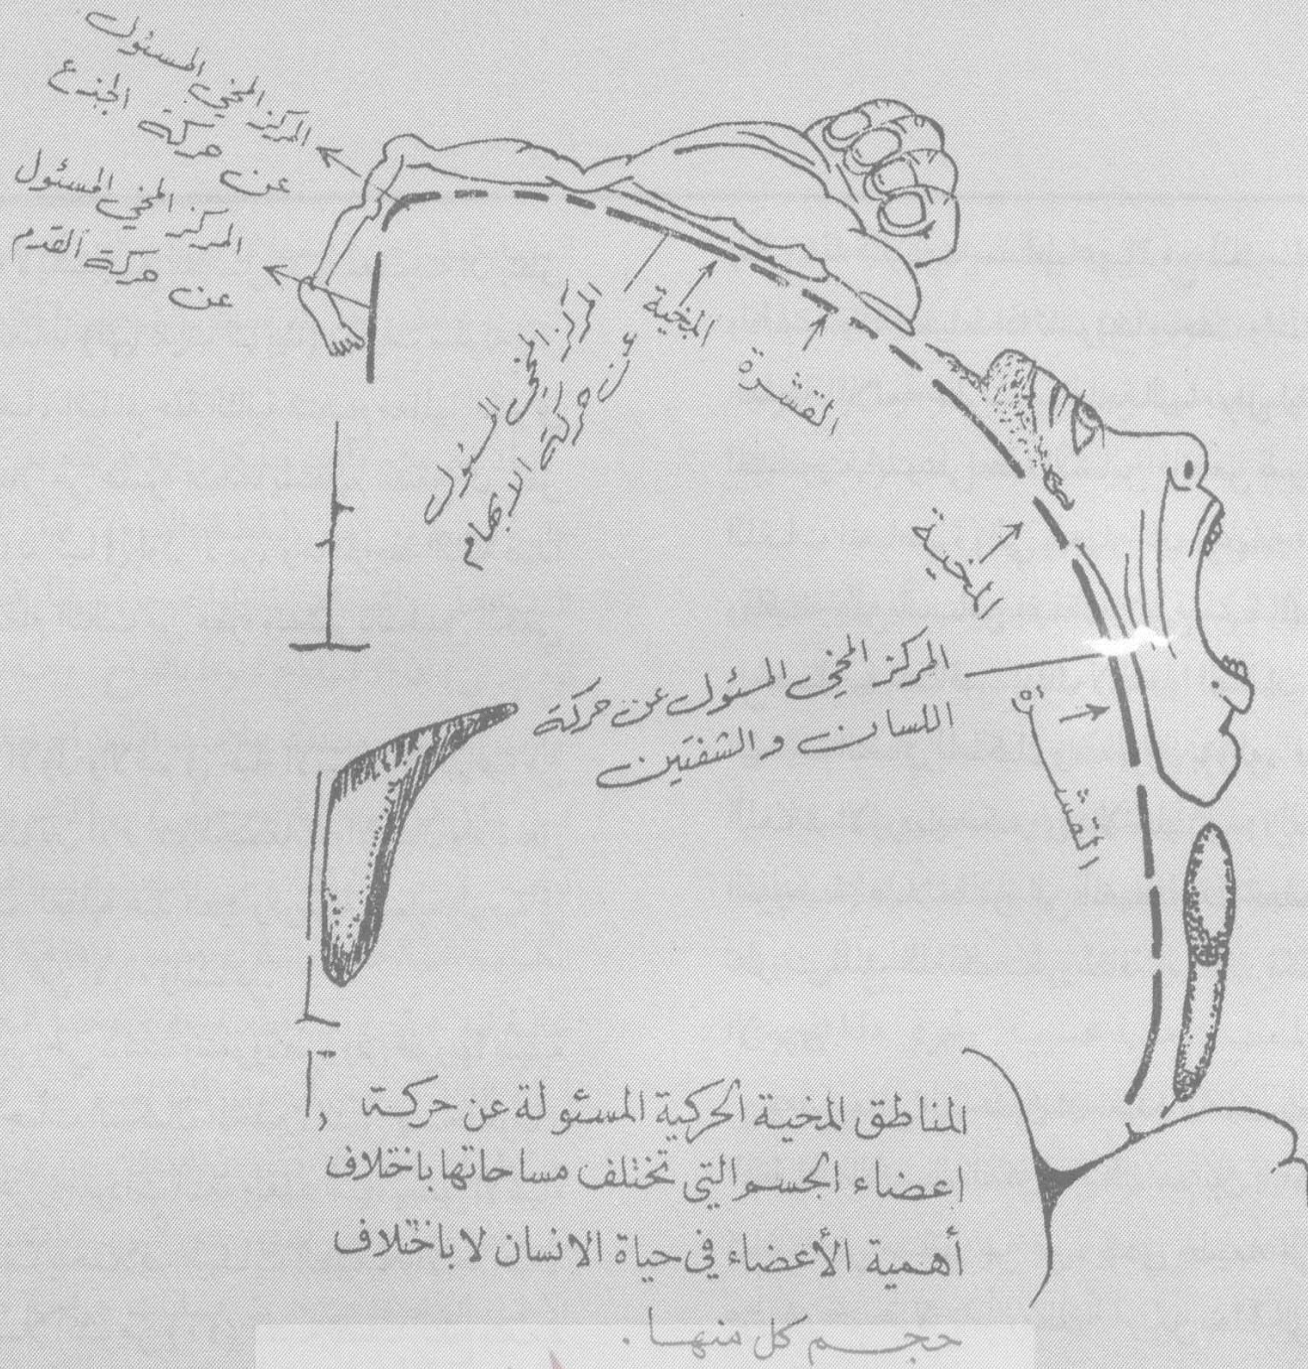 المركز المخي المسئول
عن حركة الجذع
المركز المخي المسئول
عن حركة القدم
المركز المخي المسئول
عن حركة الابهام
المخية
القشرة
المخية
القشرة
المركز المخي المسئول عن حركة
اللسان والشفتين
المناطق المخية الحركية المسئولة عن حركة
اعضاء الجسم التي تختلف مساحاتها باختلاف
أهمية الأعضاء في حياة الانسان لا باختلاف
حجم كل منها .